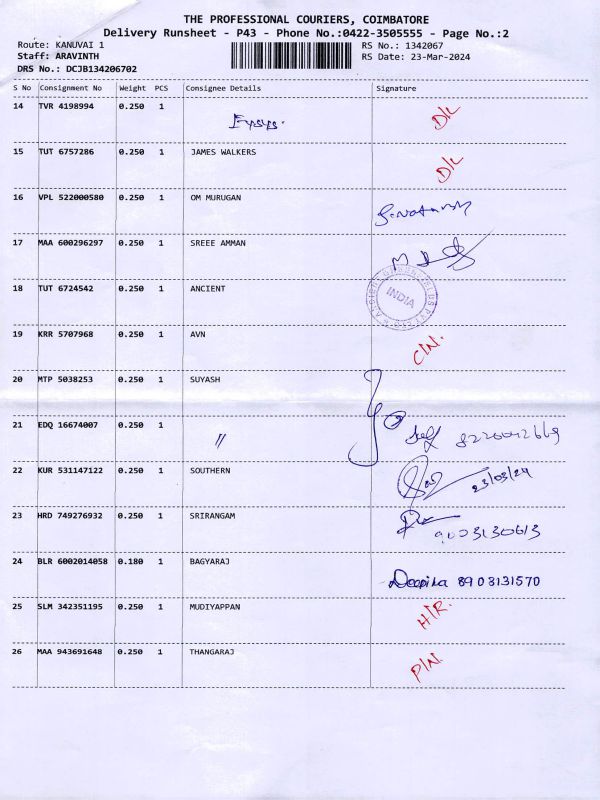 THE PROFESSIONAL COURIERS, COIMBATORE
Delivery Runsheet - P43 - Phone No.:0422-3505555 - Page No.:2
Route: KANUVAI 1 RS No.: 1342067
Staff: ARAVINTH RS Date: 23-Mar-2024
DRS No.: DCJB134206702
S No Consignment No Weight PCS Consignee Details Signature
14 TVR 4198994 0.250 1 D/L
15 TUT 6757286 0.250 1 JAMES WALKERS D/L
16 VPL 522000580 0.250 1 OM MURUGAN
17 MAA 600296297 0.250 1 SREEE AMMAN
18 TUT 6724542 0.250 1 ANCIENT INDIA
19 KRR 5707968 0.250 1 AVN C/N.
20 MTP 5038253 0.250 1 SUYASH
21 EDQ 16674007 0.250 1 〃 Self 8220042669
22 KUR 531147122 0.250 1 SOUTHERN 23/03/24
23 HRD 749276932 0.250 1 SRIRANGAM 9003130613
24 BLR 6002014058 0.180 1 BAGYARAJ Deepika 8903131570
25 SLM 342351195 0.250 1 MUDIYAPPAN H/R.
26 MAA 943691648 0.250 1 THANGARAJ P/N.